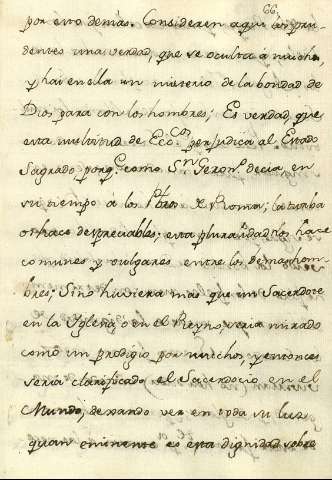 66.
por esto demàs. Consideren aqui los pru-
dentes una verdad, que se oculta á muchos,
y hai en ella un misterio de la bondad de
Dios para con los hombres; Es verdad, que
esta multitud de Ecc.cos perjudica al Estado
Sagrado porq.e como S.n Geron.o decia en
su tiempo á los Pbros de Roma; la turba
os hace despreciables; esta pluralidad nos hace
comunes y vulgares entre los demas hom-
bres; Sino huviera mas que un Sacerdote
en la Yglesia, o en el Reyno, seria mirado
como un prodigio por muchos, y entonces
seria clarificado el Sacerdocio en el
Mundo, dexando ver en toda su luz
quan eminente es esta dignidad sobre